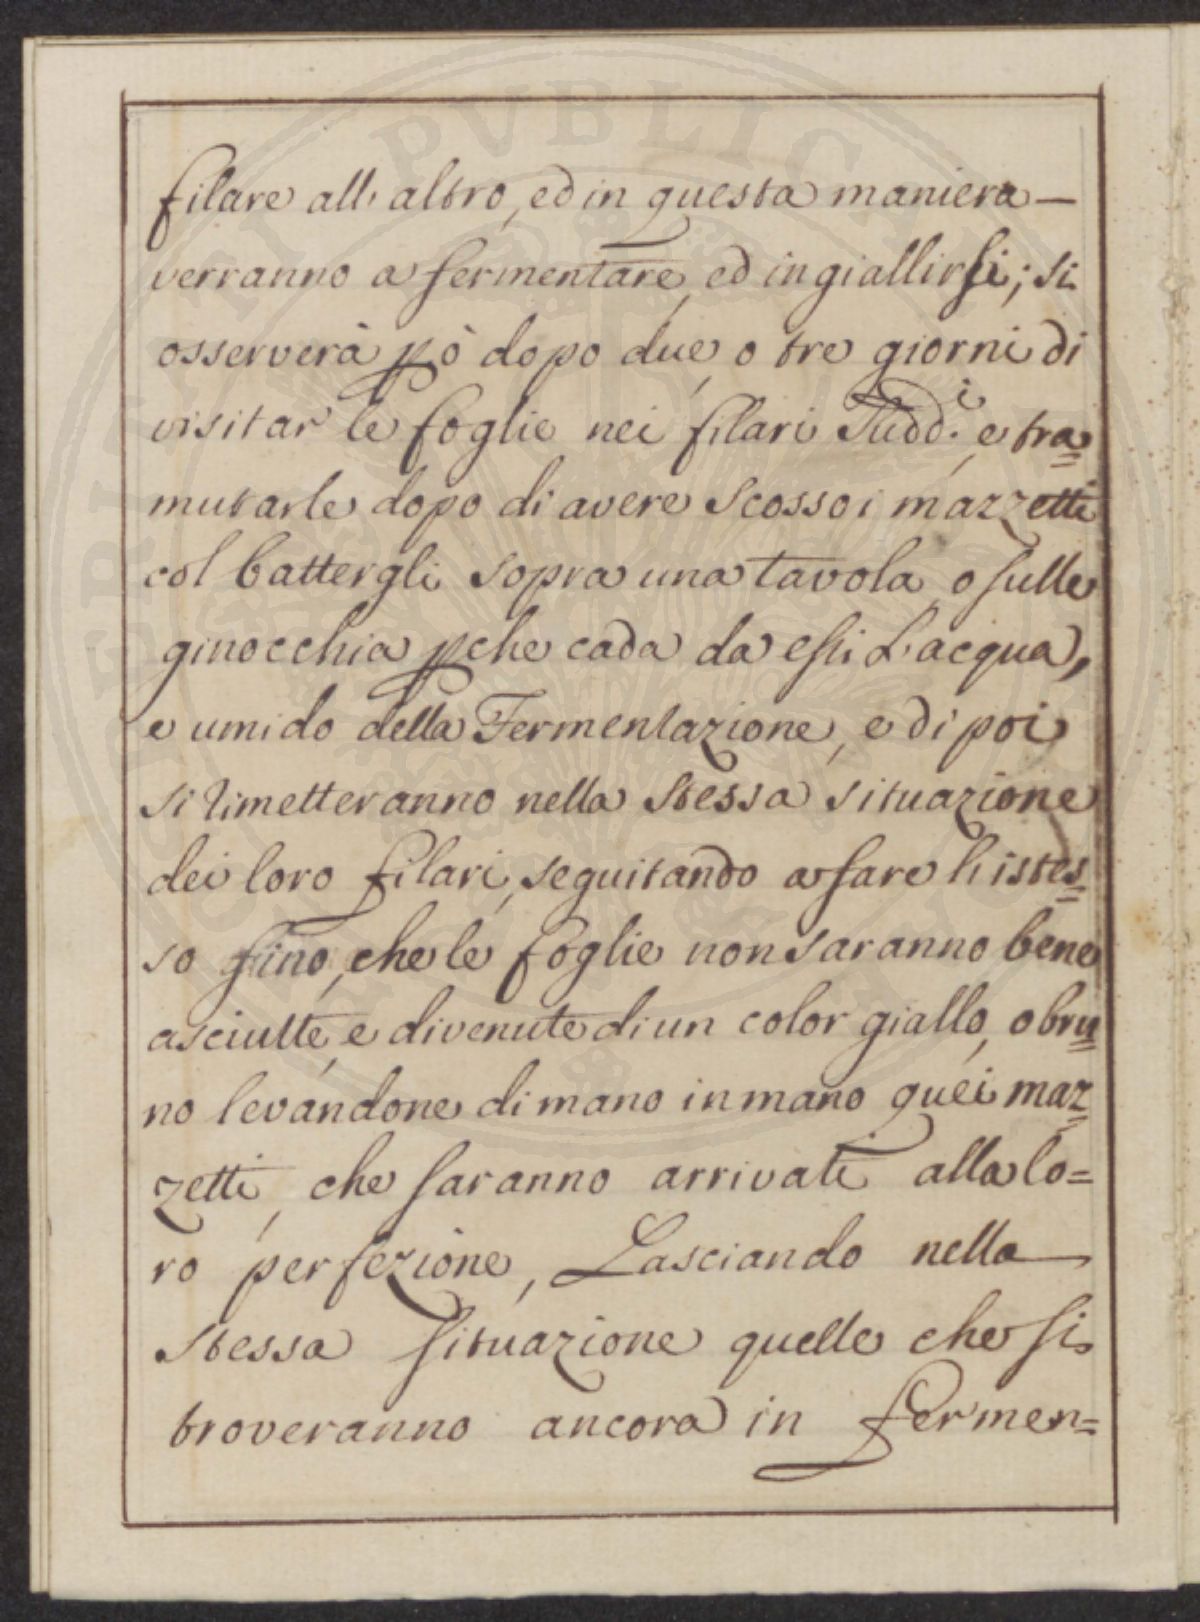 filare all' altro, ed in questa maniera —
verranno a fermentare, ed ingiallirsi; si
osserverà pò dopo due, o tre giorni di
visitar le foglie nei filari Sudd.i, e tra=
mutarle dopo di avere scosso i mazzetti
col battergli sopra una tavola, o sulle
ginocchia pche cada da essi L'acqua,
e umido della Fermentazione, e di poi
si rimetteranno nella stessa situazione
dei loro filari, seguitando a fare l'istes=
so fino, che le foglie non saranno bene
asciutte, e divenute di un color giallo, o bru=
no levandone di mano in mano quei maz=
zetti, che saranno arrivati alla lo=
ro perfezione, Lasciando nella
stessa situazione quelle che si
troveranno ancora in fermen=